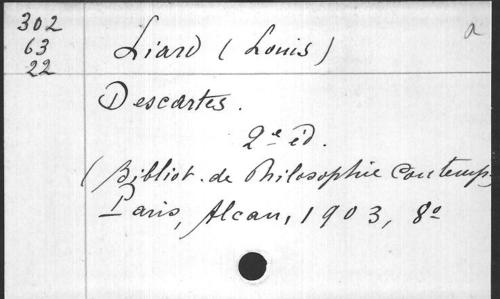 302
63
22
Liard (Louis)
a
Descartes.
2e éd.
(Bibliot. de Philosophie Contemp.
Paris, Alcan, 1903, 8º